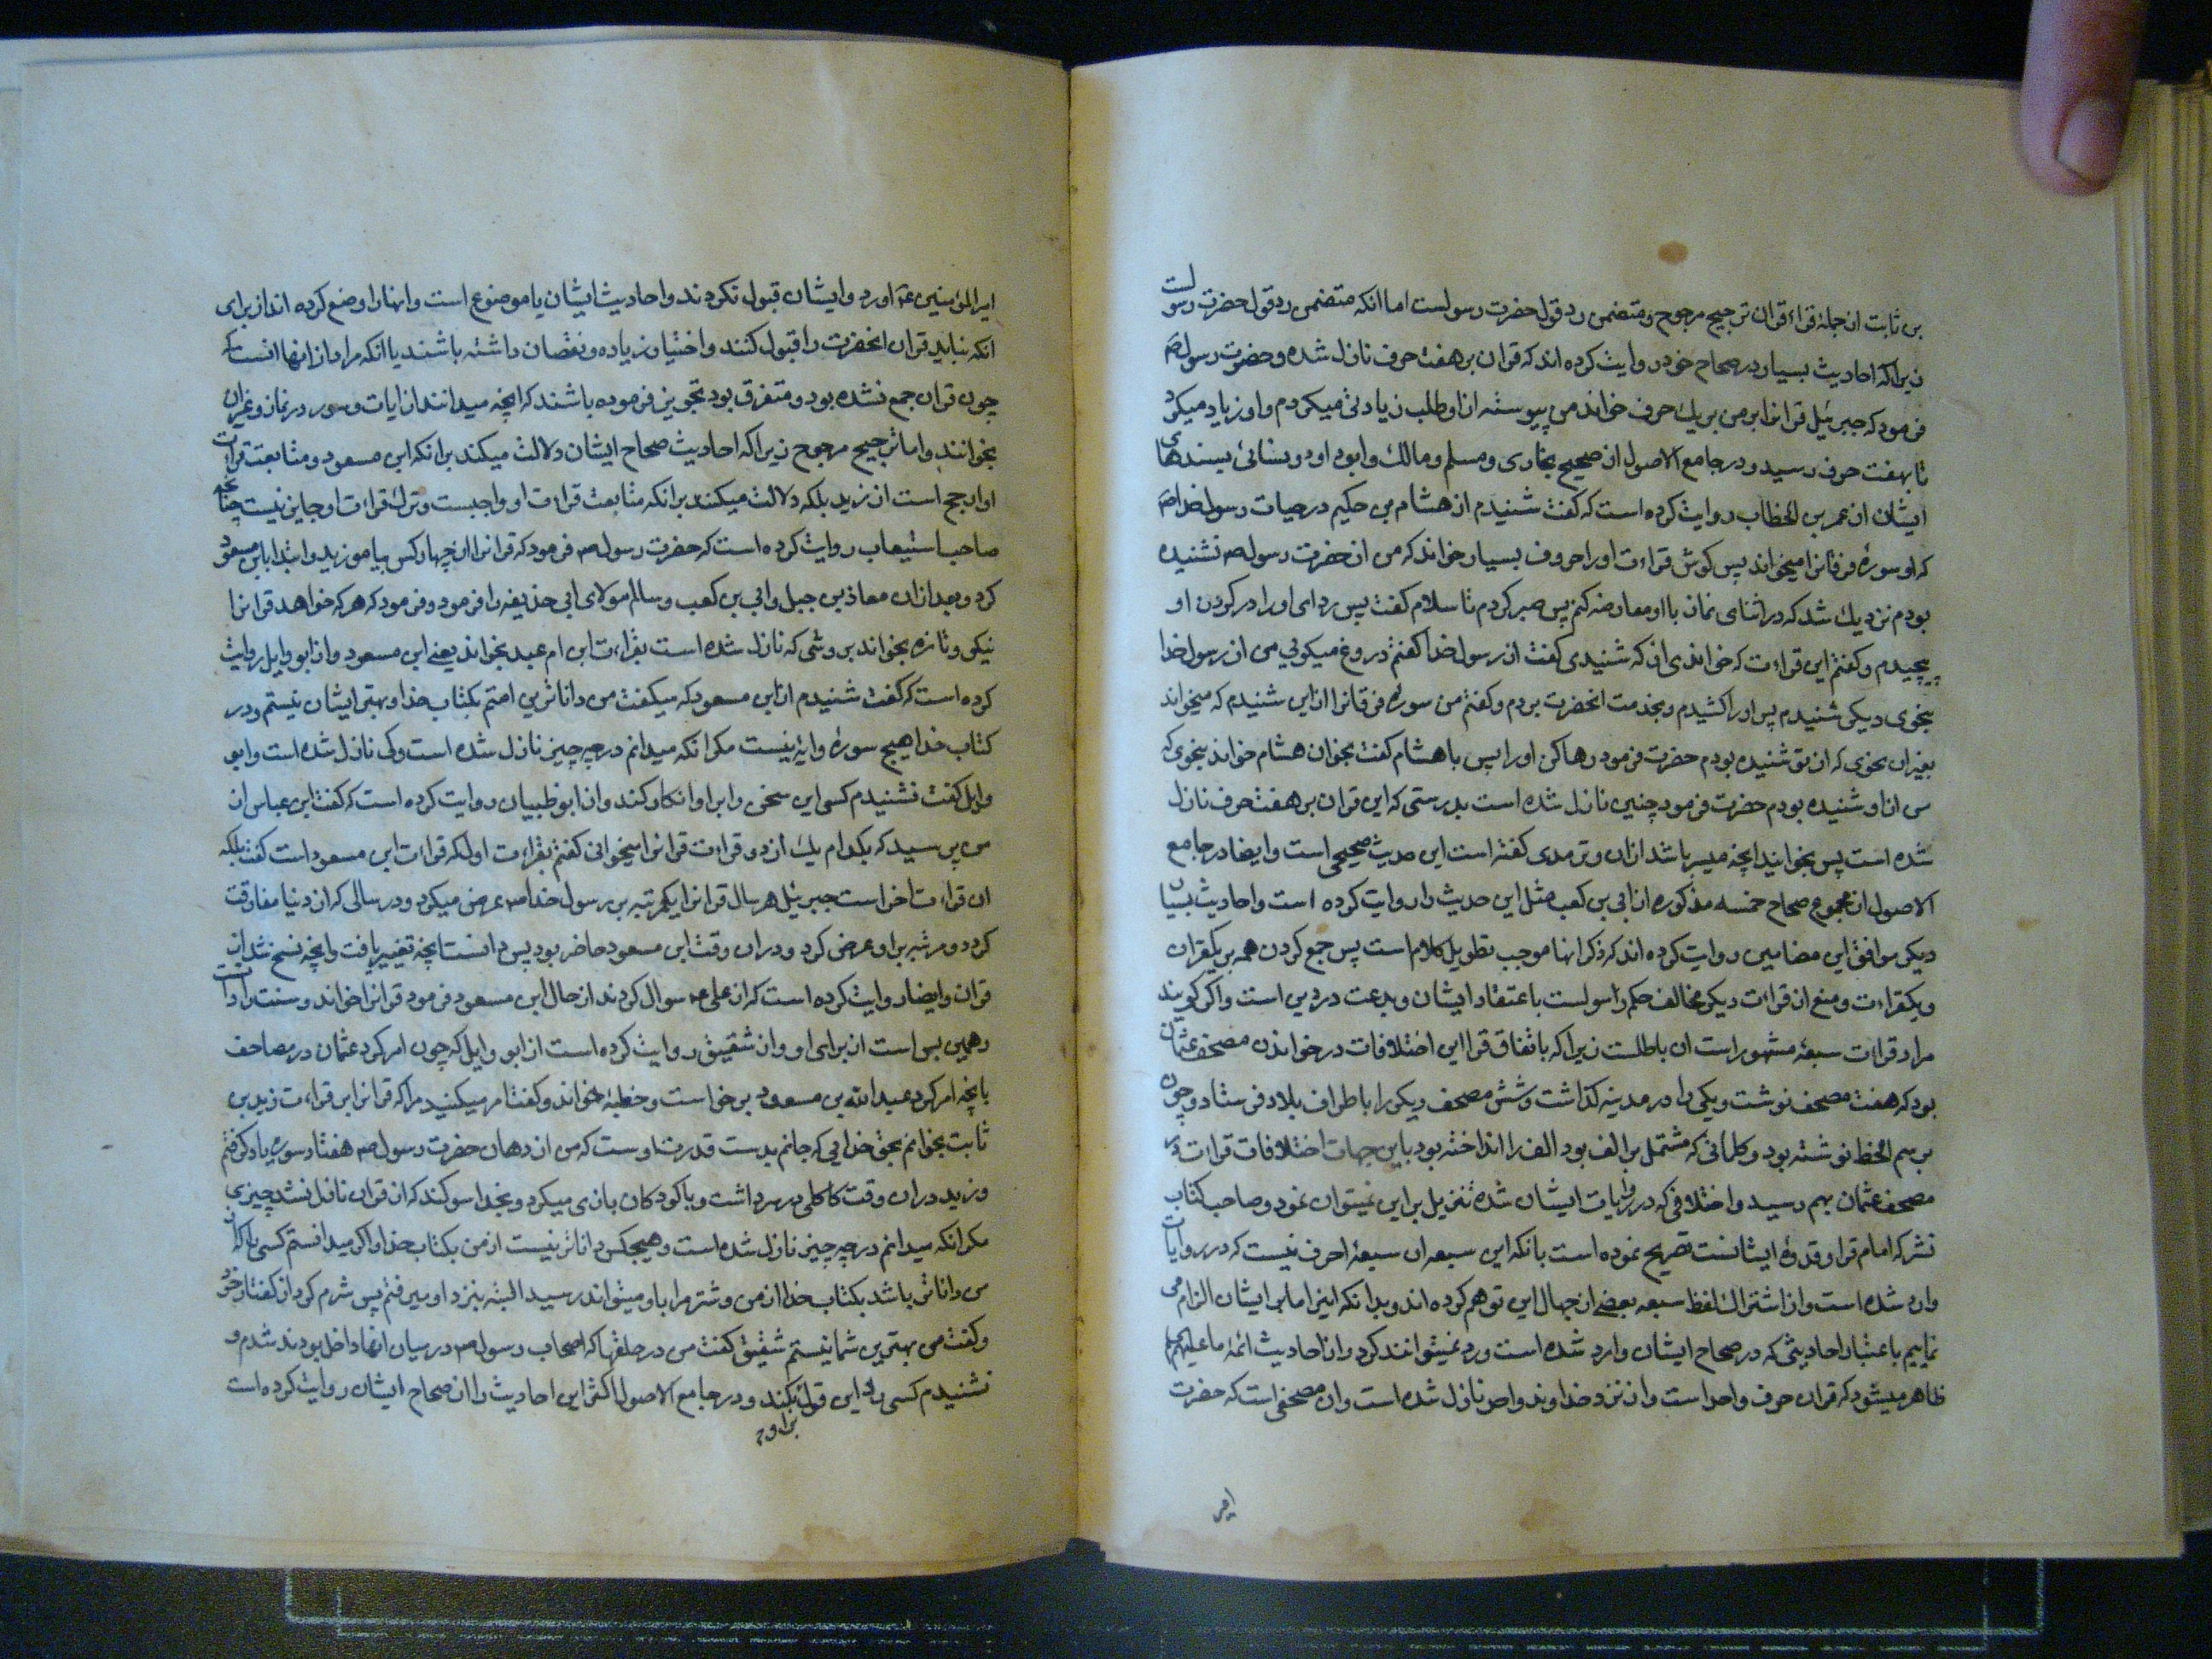 بن ثابت از جمله قراء قران ترجیح مرجوح و متضمن رد قول حضرت رسولست اما انکه متضمن رد قول حضرت رسولست
زیرا که احادیث بسیار در صحاح خود روایت کرده اند که قران بر هفت حرف نازل شده و حضرت رسول ص
فرمود که جبرئیل قرانرا بر من بر یک حرف خواند من پیوسته از او طلب زیادتی میکردم و او زیاد میکرد
تا بهفت حرف رسید و در جامع الاصول از صحیح بخاری و مسلم و مالک و ابو داود و نسائی بسندهای
ایشان از عمر بن الخطاب روایت کرده است که گفت شنیدم از هشام بن حکیم در حیات رسول خدا ص
که او سوره فرقانرا میخواند پس کوش قراءت او را حروف بسیار خواند که من از حضرت رسول ص نشنیده
بودم نزدیک شد که در اثنای نماز با او معارضه کنم پس صبر کردم تا سلام کفت پس ردای او را در کردن او
پیچیدم و کفتم این قراءت که خواندی از که شنیدی کفت از رسول خدا کفتم دروغ میکویی من از رسول خدا
بنحوی دیکر شنیدم پس او را کشیدم و بخدمت انحضرت بردم و کفتم من سوره فرقانرا از این شنیدم که میخواند
بغیر ان نحوی که از تو شنیده بودم حضرت فرمود رها کن او را پس با هشام کفت بخوان هشام خواند بنحوی که
من از او شنیده بودم حضرت فرمود چنین نازل شده است بدرستی که این قران بر هفت حرف نازل
شده است پس بخوانید انچه میسر باشد از ان و ترمدی کفته است این حدیث صحیحی است و ایضا در جامع
الاصول از مجموع صحاح خمسه مذکوره از ابی بن کعب مثل این حدیث را روایت کرده است و احادیث بسیار
دیکر موافق این مضامین روایت کرده اند که ذکر انها موجب تطویل کلام است پس جمع کردن همه بر یکقران
و یکقراءت و منع از قراءت دیکر مخالف حکم رسولست باعتقاد ایشان و بدعت در دین است و اکر کویند
مراد قراءت سبعه مشهور است ان باطلست زیرا که باتفاق قرا این اختلافات در خواندن مصحف عثمان
بود که هفت مصحف نوشت و یکی را در مدینه کذاشت و شش مصحف دیکر را باطراف بلاد فرستاد و چون
برسم الخط نوشته بود و کلماتی که مشتمل بر الف بود الف را انداخته بود باین جهات اختلافات قراءت در
مصحف عثمان بهم رسید و اختلافی که در روایات ایشان شده تنزیل بر این نمیتوان نمود و صاحب کتاب
نشر که امام قرا و قدوه ایشانست تصریح نموده است بانکه این سبعه ان سبعه احرف نیست که در روایات
وارد شده است و از اشتراک لفظ سبعه بعضی از جهال این توهم کرده اند و بدانکه اینرا ما بر ایشان الزام می
نماییم باعتبار احادیثی که در صحاح ایشان وارد شده است و رد نمیتوانند کرد و از احادیث ائمه ما علیهم
ظاهر میشود که قران حرف واحد است و از نزد خداوند واحد نازل شده است و ان مصحفی است که حضرت
امیر
امیرالمؤمنین ع اورد و ایشان قبول نکردند و احادیث ایشان یا موضوع است و انها را وضع کرده اند از برای
انکه نباید قران انحضرت را قبول کنند و اختیار زیاده و نقصان داشته باشند یا انکه مراد از انها انست که
چون قران جمع نشده بود و متفرق بود تجویز فرموده باشند که انچه میدانند از ایات و سور در نماز و غیر ان
بخوانند و اما ترجیح مرجوح زیرا که احادیث صحاح ایشان دلالت میکند بر انکه ابن مسعود و متابعت قراءت
او ارجح است از زید بلکه دلالت میکند بر انکه متابعت قراءت او واجبست و ترک قراءت او جایز نیست چنانچه
صاحب استیعاب روایت کرده است که حضرت رسول ص فرمود که قرانرا از چهار کس بیاموزید و ابتدا بابن مسعود
کرد و بعد از ان معاذ بن جبل و ابی بن کعب و سالم مولای ابی حذیفه را فرمود و فرمود که هر که خواهد قرانرا
نیکو و تازه بخواند بروشی که نازل شده است بقراءت ابن ام عبد بخواند یعنی ابن مسعود و از ابو وایل روایت
کرده است که کفت شنیدم از ابن مسعود که میکفت من داناترین امتم بکتاب خدا و بهتر ایشان نیستم و در
کتاب خدا هیچ سوره و ایه نیست مکر انکه میدانم در چه چیز نازل شده است و کی نازل شده است و ابو
وایل کفت نشنیدم کسی این سخن را بر او انکار کند و از ابو ظبیان روایت کرده است که کفت ابن عباس از
من پرسید که بکدام یک از دو قراءت قرانرا میخوانی کفتم بقراءت اول که قراءت ابن مسعود است کفت بلکه
ان قراءت اخر است جبرئیل هر سال قرانرا یکمرتبه بر رسول خدا ص عرض میکرد و در سالی که از دنیا مفارقت
کرد دو مرتبه بر او عرض کرد و در ان وقت ابن مسعود حاضر بود پس دانست انچه تغییر یافت و انچه نسخ شد از
قران و ایضا روایت کرده است که از علی ع سوال کردند از حال ابن مسعود فرمود قرانرا خواند و سنت را دانست
و همین بس است از برای او و از شقیق روایت کرده است از ابو وایل که چون امر کرد عثمان در مصاحف
بانچه امر کرد عبد الله بن مسعود برخواست و خطبه خواند و کفت امر میکنید مرا که قرانرا بر قراءت زید بن
ثابت بخوانم بحق خدایی که جانم بدست قدرت اوست که من از دهان حضرت رسول ص هفتاد سوره یاد کرفتم
و زید در ان وقت کاکلی در سر داشت و با کودکان بازی میکرد و بخدا سوکند که از قران نازل نشد چیزی
مکر انکه میدانم در چه چیز نازل شده است و هیچکس داناتر نیست از من بکتاب خدا و اکر میدانستم کسی را که از
من داناتر باشد بکتاب خدا از من و شتر مرا باو میتواند رسید البته بنزد او میرفتم پس شرم کرد از کفتار خود
و کفت من بهترین شما نیستم شقیق کفت من در حلقها که اصحاب رسول ص در میان انها داخل بودند شدم و
نشنیدم کسی رد این قول بر او بکند و در جامع الاصول اکثر این احادیث را از صحاح ایشان روایت کرده است